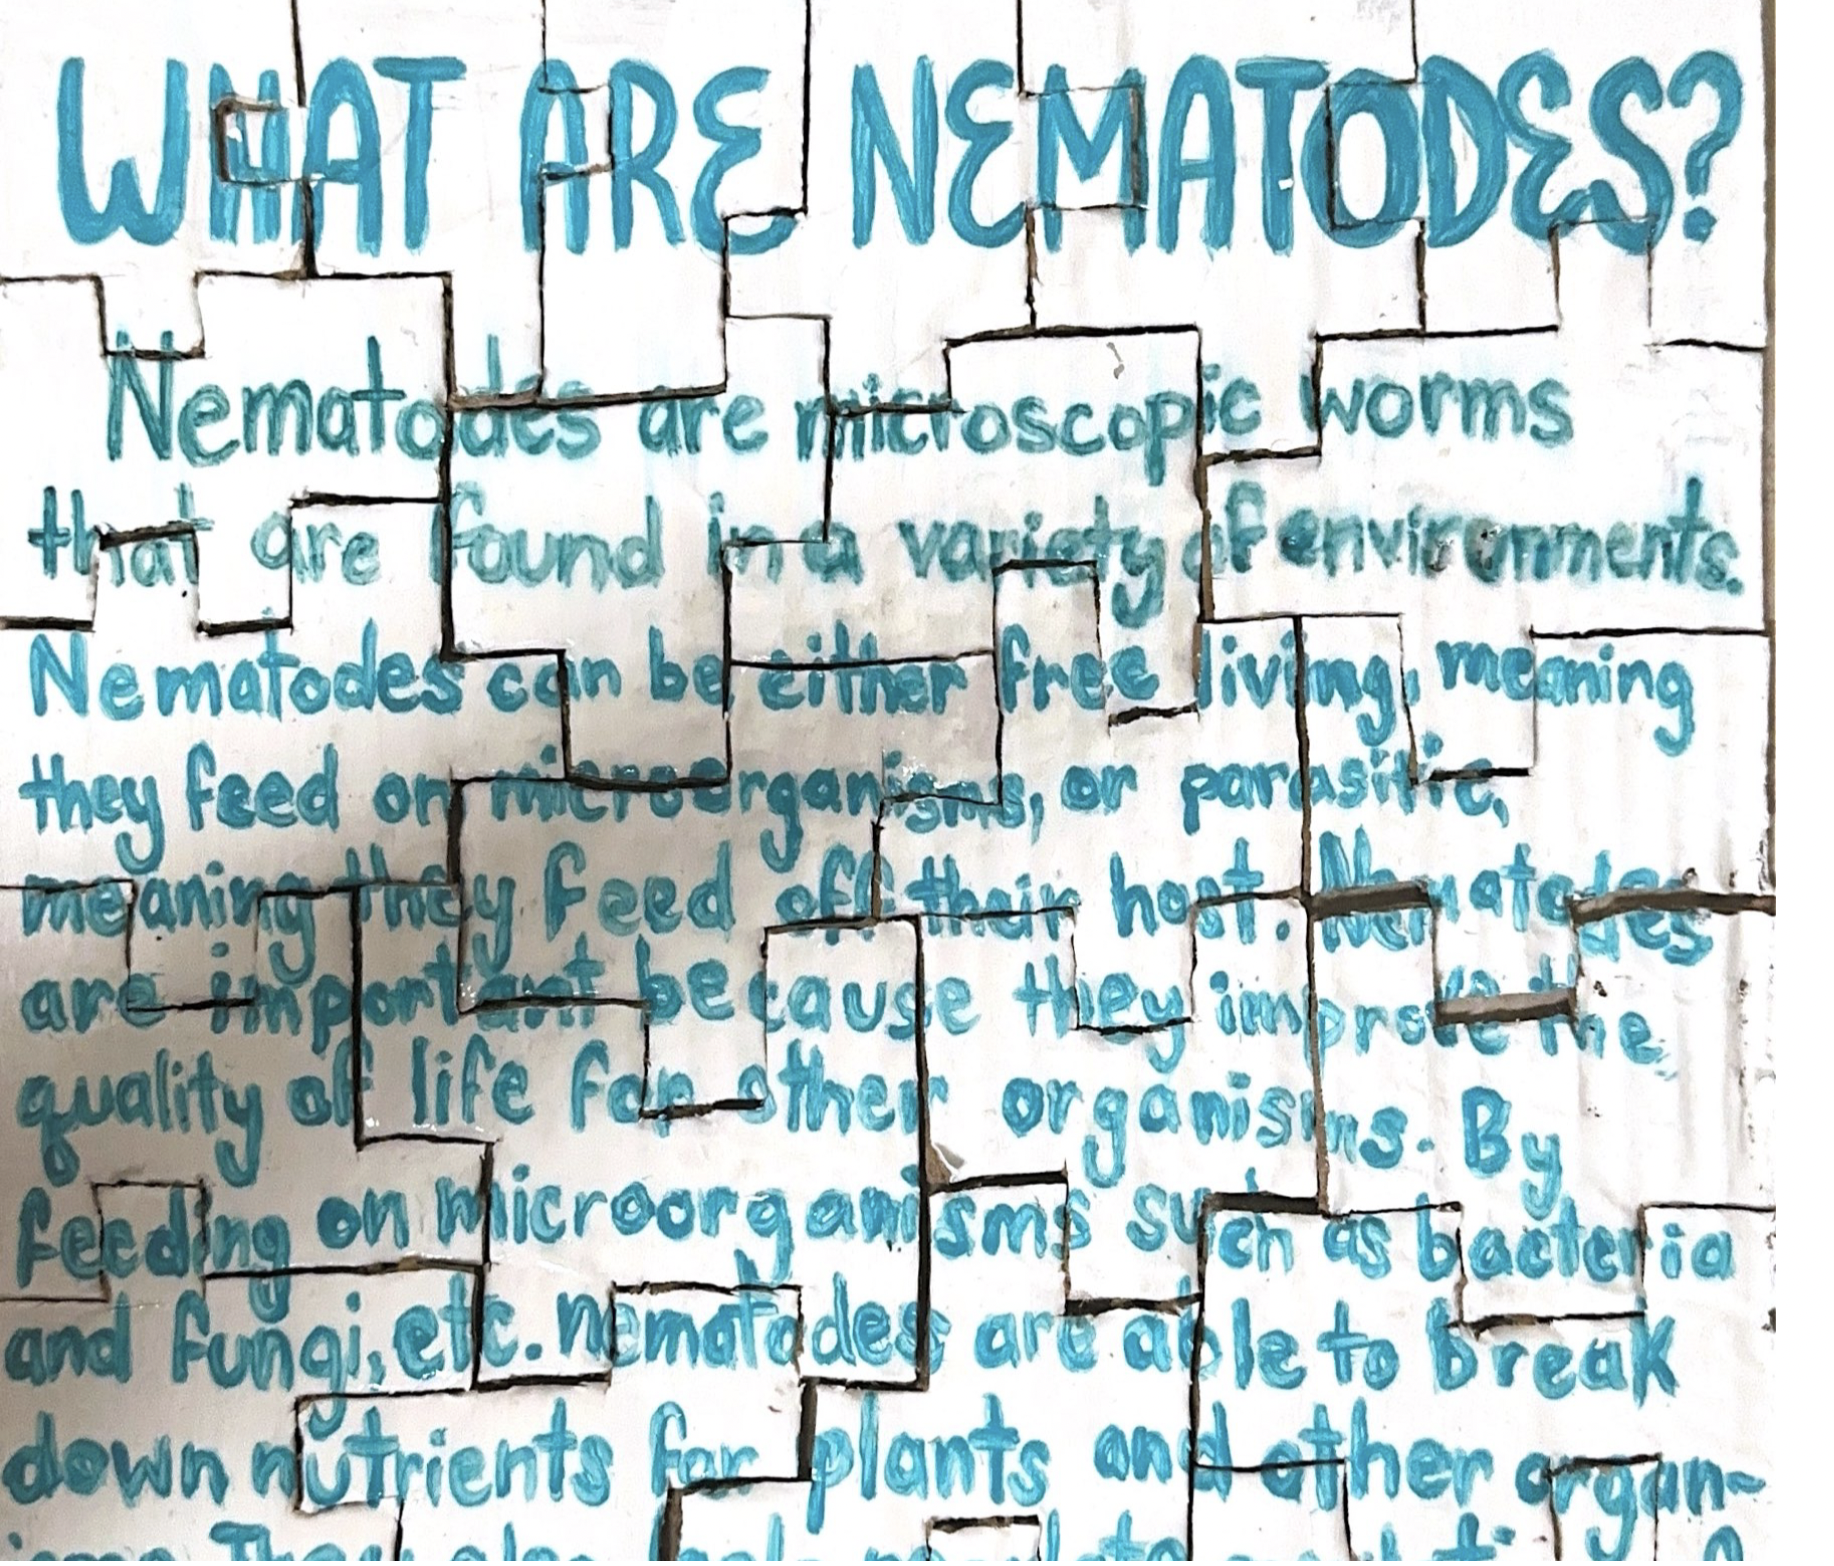 WHAT ARE NEMATODES?
Nematodes are microscopic worms
that are found in a variety of environments.
Nematodes can be either free living, meaning
they feed on microorganisms, or parasitic,
meaning they feed off their host. Nematodes
are important because they improve the
quality of life for other organisms. By
feeding on microorganisms such as bacteria
and fungi, etc. nematodes are able to break
down nutrients for plants and other organ-
isms. They also